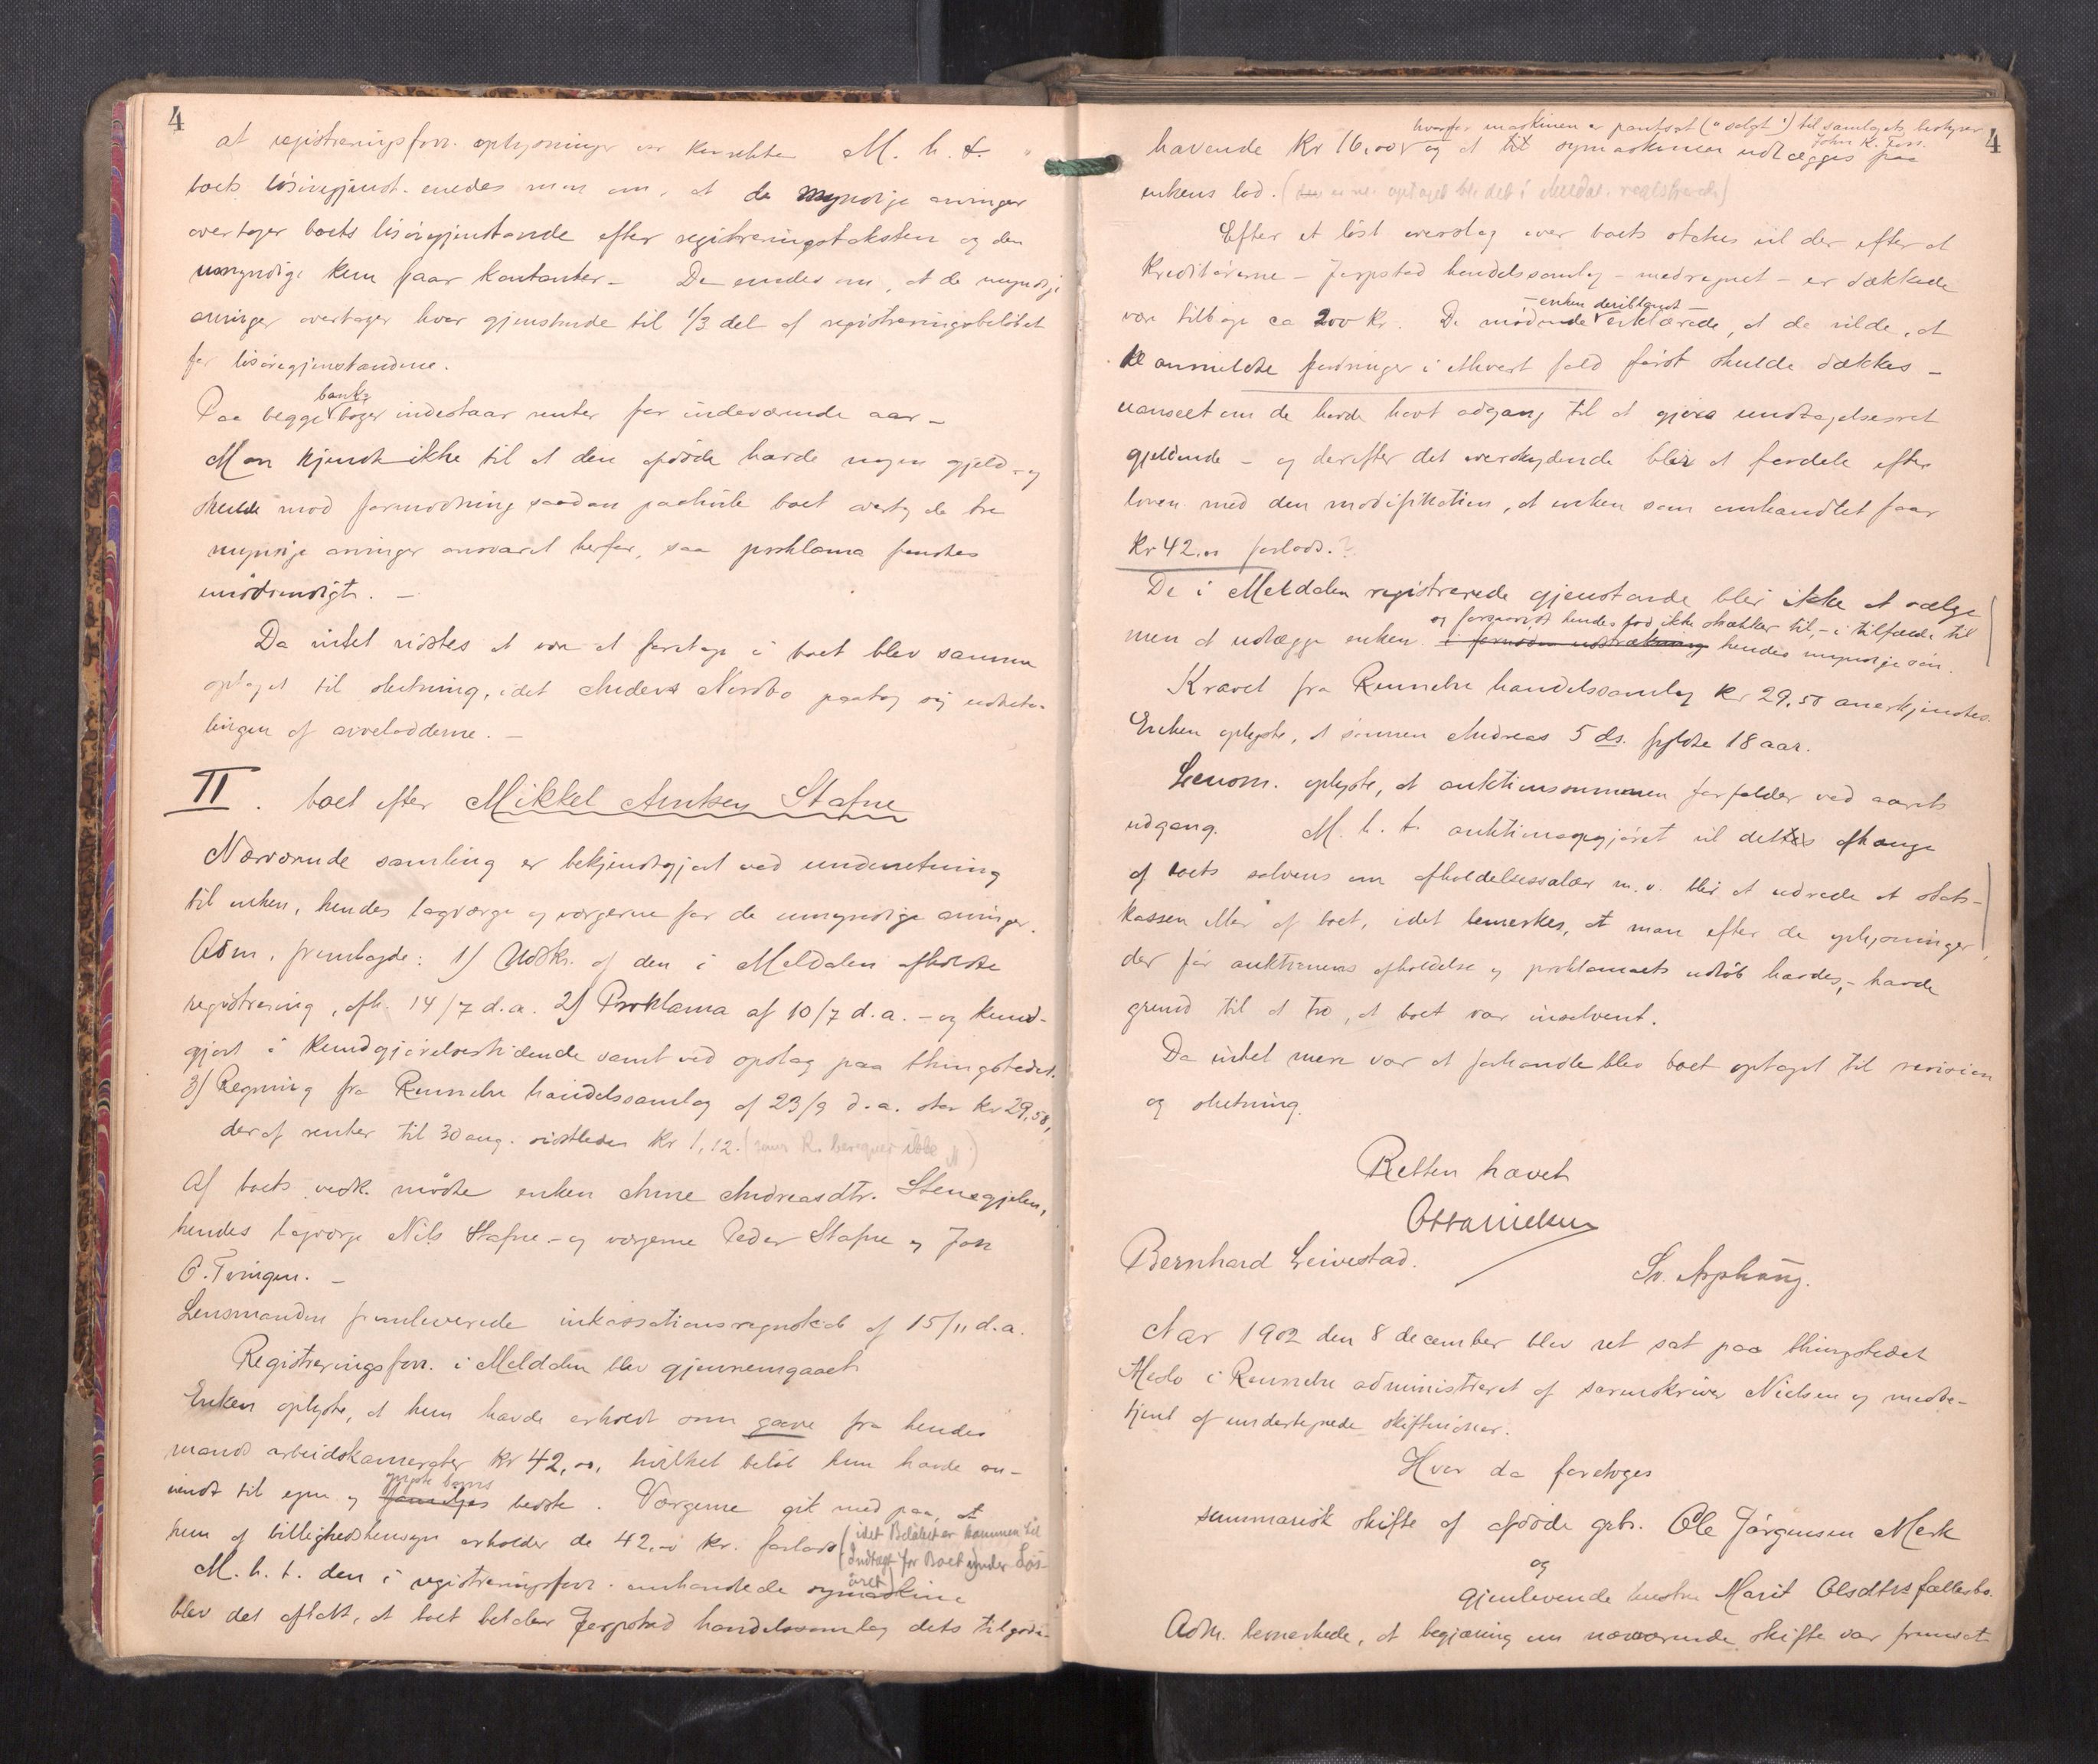 4
at registreringsforr. oplysninger var korrekte M. h. t.
boets lösöregjenst. enedes man om, at de myndige arvinger
overtager boets lösöregjenstande efter registreringstaksten og den
umyndige kun faar kontanter – De enedes om, at de myndige
arvinger overtager hver gjenstande til 1/3 del af registreringsbelöbet
for lösöregjenstandene.
Paa begge bank bøger indestaar renter for indeværende aar –
Man kjendte ikke til at den afdöde havde nogen gjeld – og
skulde mod formodning saadan paahvile boet overtog de tre
myndige arvinger ansvaret herfor, saa proklama fandtes
unödvendigt. –
Da intet vidstes at være at foretage i boet blev samme
optaget til slutning, idet Anders Nordbo paatog sig udbeta-
lingen af arvelodderne. –
II. boet efter Mikkel Arntsen Stafne
Nærværende samling er bekjendtgjort ved underretning
til enken, hendes lagværge og værgerne for de umyndige arvinger.
Adm. fremlagde: 1) Udskr. af den i Meldalen afholdte
registrering, afh. 14/7 d.a. 2) Proklama af 10/7 d.a. – og kund-
gjort i Kundgjörelsestidende samt ved opslag paa thingstedet.
3) Regning fra Rennebu handelssamlag af 23/9 d.a. stor kr 29,58,
deraf renter til 30 aug. sidstleden kr 1,12. ( beregner ikke )
Af boets vedk. mödte enken Anne Andreasdtr. Stenegjelen,
hendes lagværge Nils Stafne – og værgerne Peder Stafne og Jon
O. Tvingen. –
Lensmanden fremleverede inkassationsregnskab af 15/11 d.a.
Registreringsforr. i Meldalen blev gjennemgaaet
Enken oplyste, at hun havde erholdt som gave fra hendes
mands arbeidskamerater kr 42,00, hvilket belöb hun havde an-
yngste barns
vendt til egen og familjes bedste. Værgerne gik med paa, at
hun af billighedshensyn erholder de 42,00 kr. forlods (idet Belöbet er kommen til
Indtægt for Boet under Lös-
öret)
M. h. t. den i registreringsforr. omhandlede symaskine
blev det aftalt, at boet betaler Jerpstad handelssamlag dets tilgode-
4
hvorfor maskinen er pantsat ("solgt") til samlagets bestyrer
John K. Foss.
havende Kr 16,00 og at symaskinen udlægges paa
enkens lod. ( optaget blev det i Meldal. registrerede)
Efter et löst overslag over boets status vil der efter at
Kreditörerne – Jerpstad handelssamlag – medregnet – er dækkede
– enken deriblandt –
være tilbage ca 200 kr. De mödende erklærede, at de vilde, at
de anmeldte fordringer i ethvert fald först skulde dækkes –
uanseet om de havde havt adgang til at gjöra undtagelsesret
gjeldende – og derefter det overskydende blir at fordele efter
loven med den modifikation, at enken som omhandlet faar
kr 42,00 forlods.?
De i Meldalen registrerede gjenstande blir ikke at sælge
og forsaavidt hendes lod ikke strækker til, – i tilfælde til
men at udlægge enken i fornöden udstrækning hendes myndige sön.
Kravet fra Rennebu handelssamlag kr 29,58 anerkjendtes.
Enken oplyste, at sönnen Andreas 5 ds. fyldte 18 aar.
Lensm. oplyste, at auktionssummen forfalder ved aarets
udgang. M. h. t. auktionsopgjöret vil det afhænge
af boets solvens om afholdelsessalær m.v. blir at udrede af stats-
kassen eller af boet, idet bemerkes, at man efter de oplysninger,
der för auktionens afholdelse og proklamaets udlöb havdes, – havde
grund til at tro, at boet var insolvent.
Da intet mere var at forhandle blev boet optaget til revision
og slutning.
Retten hævet
Otto Nielsen
Bernhard Leivestad.
Sv. Asphaug.
Aar 1902 den 8 december blev ret sat paa thingstedet
Meslo i Rennebu administreret af sorenskriver Nielsen og medbe-
tjent af undertegnede skiftevidner.
Hvor da foretoges
summarisk skifte af afdöde grbr. Ole Jörgensen Merk
og
gjenlevende hustru Marit Olsdtrs fællesbo.
Adm. bemerkede, at begjæring om nærværende skifte var fremsat